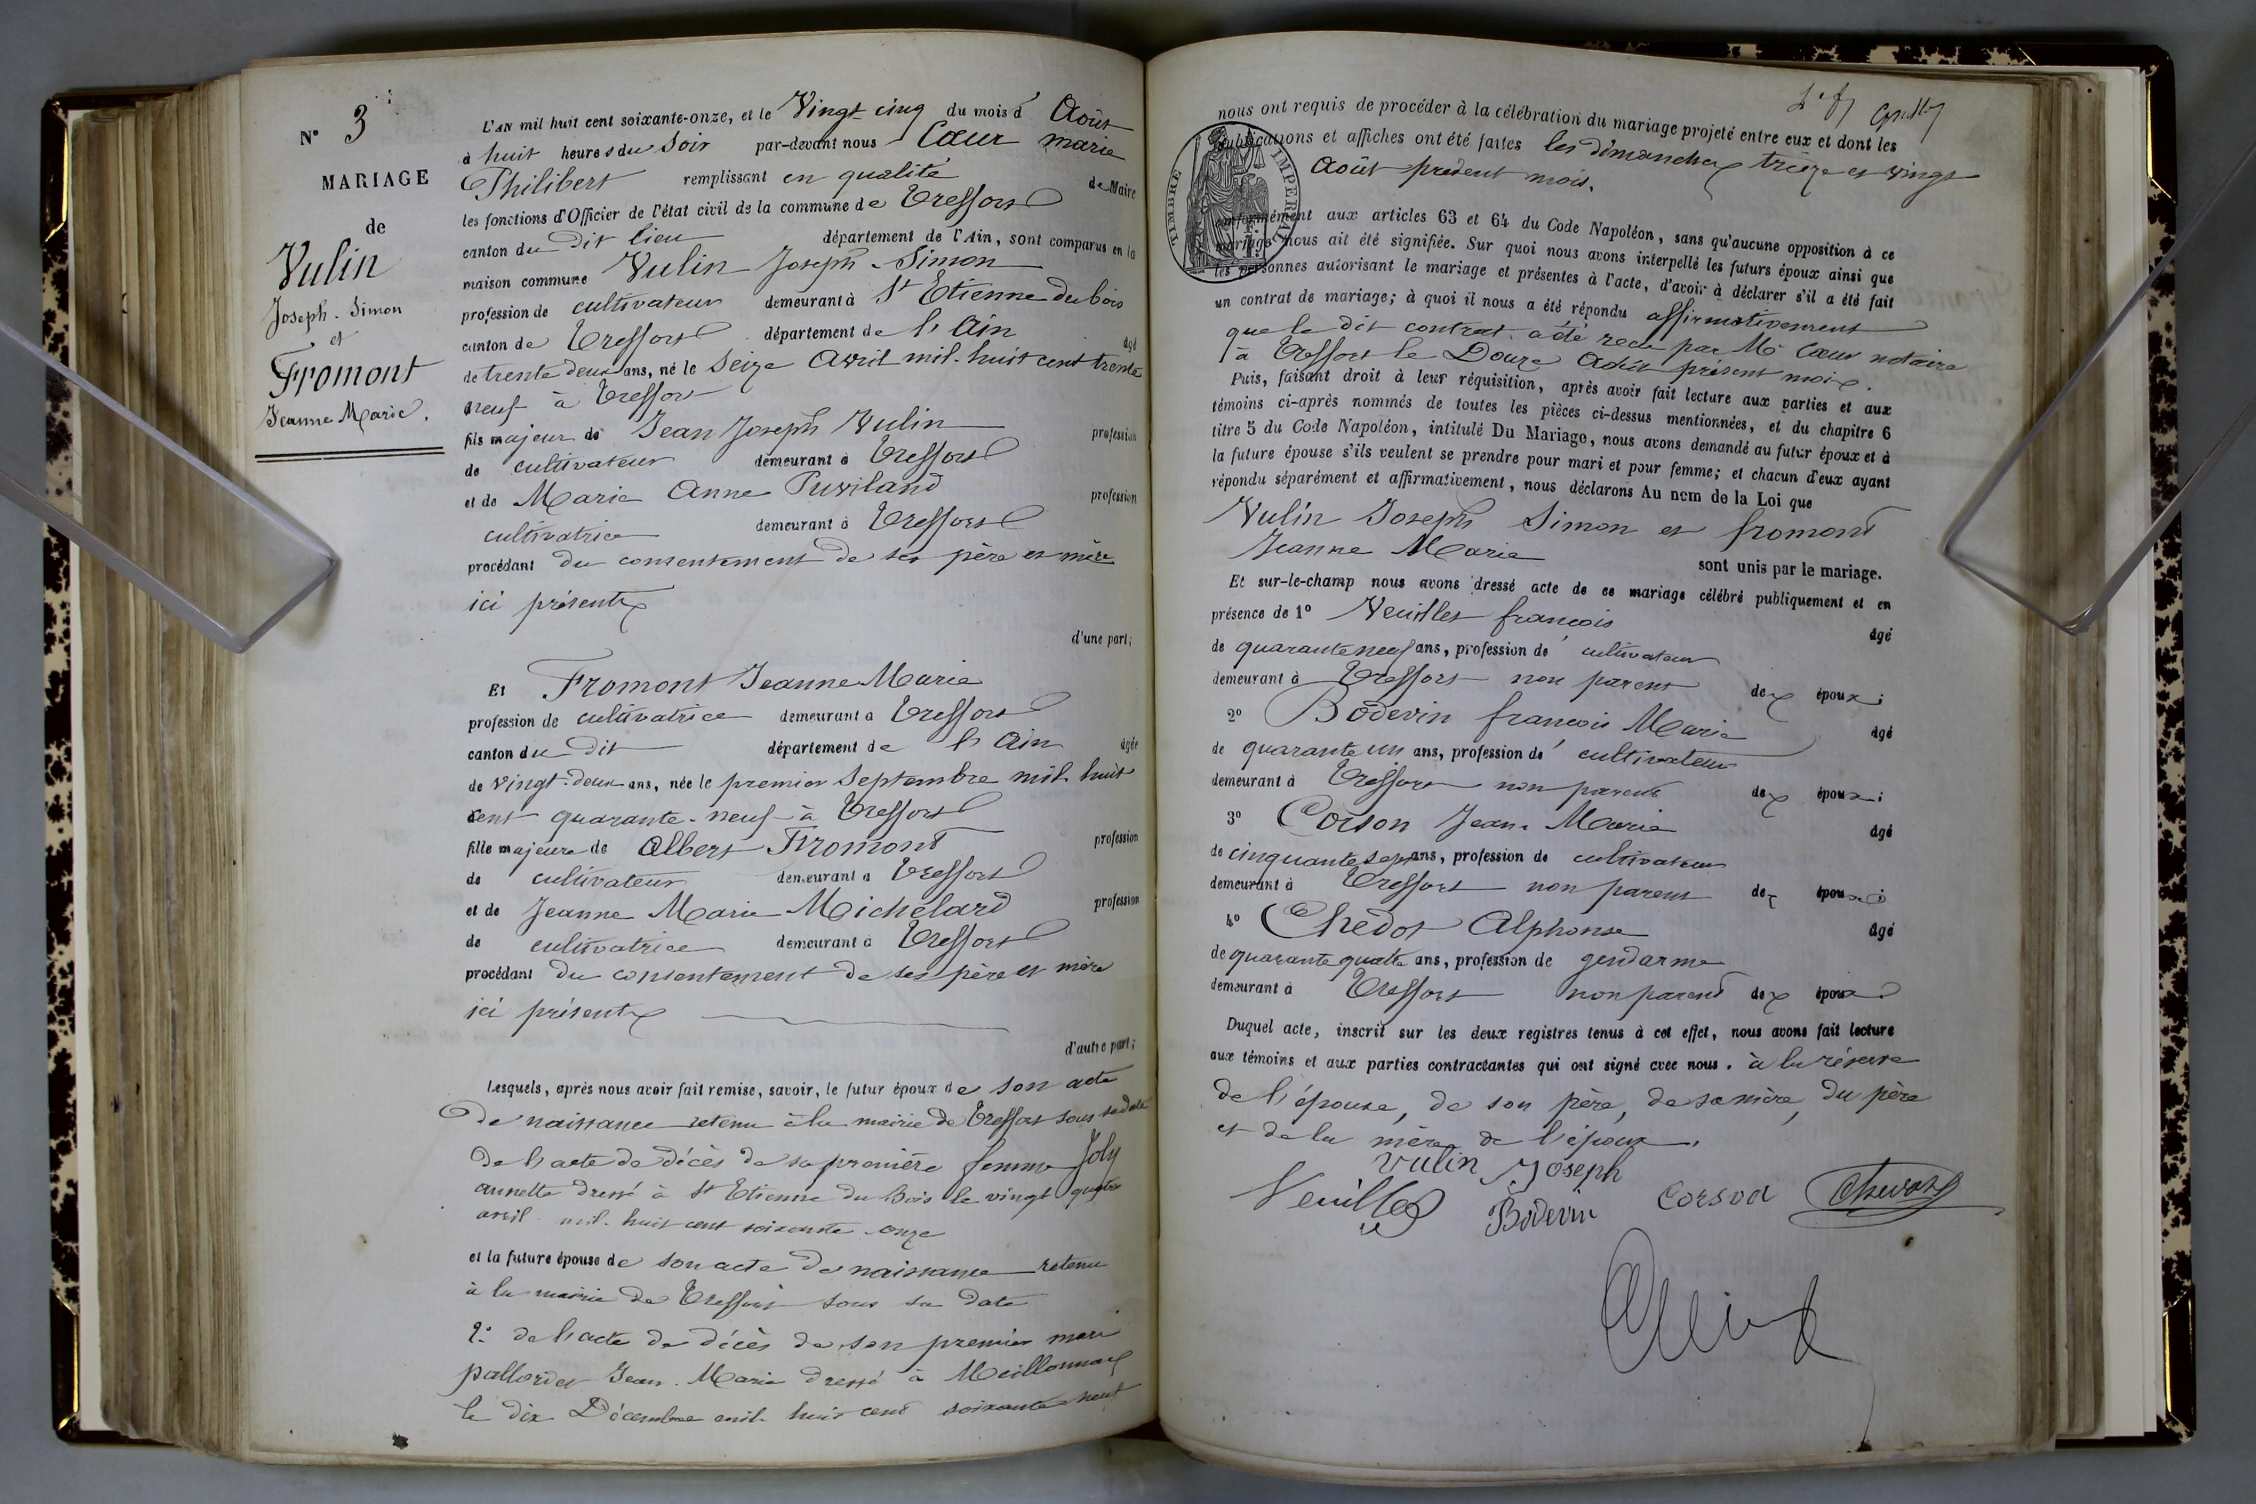 N° 3
MARIAGE
de
Vulin
Joseph. Simon
et
Fromont
Jeanne Marie.
L'AN mil huit cent soixante-onze, et le Vingt cinq du mois d' Août
à huit heures du Soir par-devant nous Cœur marie
Philibert remplissant en qualité de Maire
les fonctions d'Officier de l'état civil de la commune de Treffort
canton du dit lieu département de l'Ain, sont comparus en la
maison commune Vulin Joseph Simon
profession de cultivateur demeurant à St Etienne du bois
canton de Treffort département de l'Ain âgé
de trente deux ans, né le seize Avril mil huit cent trente
neuf à Treffort
fils majeur de Jean Joseph Vulin profession
de cultivateur demeurant à Treffort
et de Marie Anne Puviland profession
cultivatrice demeurant à Treffort
procédant du consentement de ses père et mère
ici présents
d'une part;
Et Fromont Jeanne Marie
profession de cultivatrice demeurant à Treffort
canton du dit département de l'Ain âgée
de vingt-deux ans, née le premier Septembre mil huit
cent quarante-neuf à Treffort
fille majeure de Albert Fromont profession
de cultivateur demeurant à Treffort
et de Jeanne Marie Michelard profession
de cultivatrice demeurant à Treffort
procédant du consentement de ses père et mère
ici présents
d'autre part;
Lesquels, après nous avoir fait remise, savoir, le futur époux de son acte
de naissance retenu à la mairie de Treffort sous sa date
De l'acte de décès de sa première femme Joly
annette dressé à St Etienne du Bois le vingt quatre
avril mil huit cent soixante-onze
et la future épouse de son acte de naissance retenu
à la mairie de Treffort sous sa date
2° de l'acte de décès de son premier mari
pallordet Jean Marie dressé à Meillonnas
le dix Décembre mil huit cent soixante neuf
nous ont requis de procéder à la célébration du mariage projeté entre eux et dont les
publications et affiches ont été faites les dimanches treize et vingt
Août présent mois.
TIMBRE IMPERIAL
conformément aux articles 63 et 64 du Code Napoléon, sans qu'aucune opposition à ce
mariage nous ait été signifiée. Sur quoi nous avons interpellé les futurs époux ainsi que
les personnes autorisant le mariage et présentes à l'acte, d'avoir à déclarer s'il a été fait
un contrat de mariage; à quoi il nous a été répondu affirmativement
que le dit contrat a été recu par Me Cœur notaire
à Treffort le Douze Août présent mois.
Puis, faisant droit à leur réquisition, après avoir fait lecture aux parties et aux
témoins ci-après nommés de toutes les pièces ci-dessus mentionnées, et du chapitre 6
titre 5 du Code Napoléon, intitulé Du Mariage, nous avons demandé au futur époux et à
la future épouse s'ils veulent se prendre pour mari et pour femme; et chacun d'eux ayant
répondu séparément et affirmativement, nous déclarons Au nom de la Loi que
Vulin Joseph Simon et fromont
Jeanne Marie sont unis par le mariage.
Et sur-le-champ nous avons dressé acte de ce mariage célébré publiquement et en
présence de 1° Veuillet françois âgé
de quarante neuf ans, profession de cultivateur
demeurant à Treffort non parent des époux;
2° Bodevin françois Marie âgé
de quarante un ans, profession de cultivateur
demeurant à Treffort non parent des époux;
3° Corson Jean Marie âgé
de cinquante sept ans, profession de cultivateur
demeurant à Treffort non parent des époux;
4° Chedot Alphonse âgé
de quarante quatre ans, profession de gendarme
demeurant à Treffort non parent des époux
Duquel acte, inscrit sur les deux registres tenus à cet effet, nous avons fait lecture
aux témoins et aux parties contractantes qui ont signé avec nous. à la réserve
de l'épouse, de son père, de sa mère, du père
et de la mère de l'époux.
Vulin Joseph
Veuillet Bodevin Corson